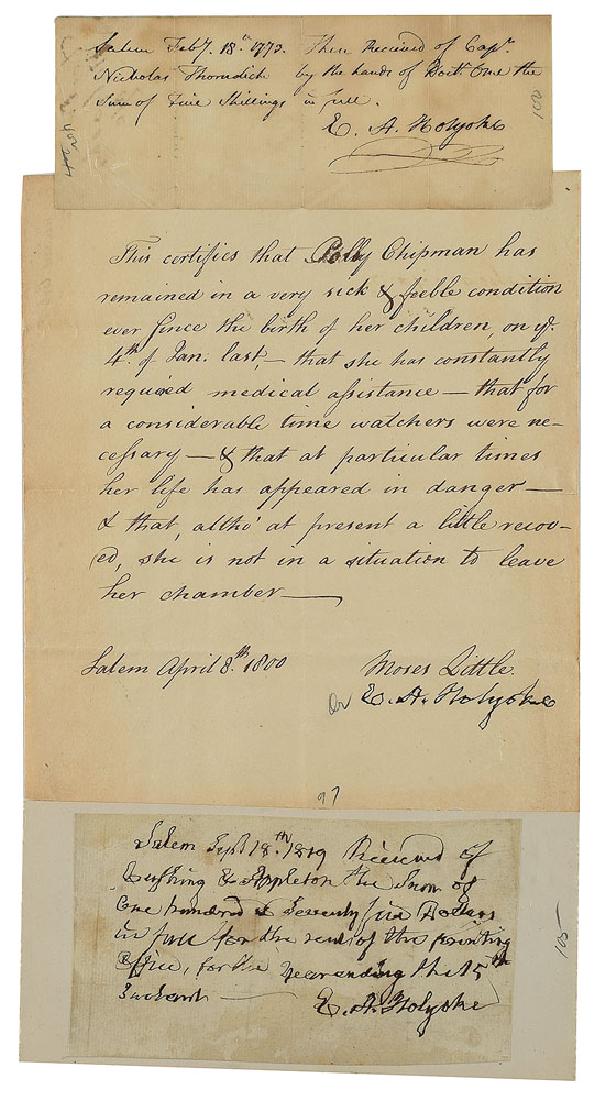 Salem Feby. 18th 1773. Then Received of Capn.
Nicholas Thorndick by the hands of Doct. One the
Sum of Five Shillings in full.
E. A. Holyoke
201
This certifies that Polly Chipman has
remained in a very sick & feeble condition
ever since the birth of her children, on ye.
4th. of Jan. last, – that she has constantly
required medical assistance – that for
a considerable time watchers were ne-
cessary – & that at particular times
her life has appeared in danger –
& that, altho' at present a little recov-
ed, she is not in a situation to leave
her chamber –
Salem April 8th. 1800
Moses Little.
Dr E. A. Holyoke
97
Salem Sept. 18th. 1819 Received of
Cushing & Appleton the Sum of
One hundred & Seventy five Dollars
in full for the rent of the printing
Office, for the Year ending the 15th
E. A. Holyoke
105